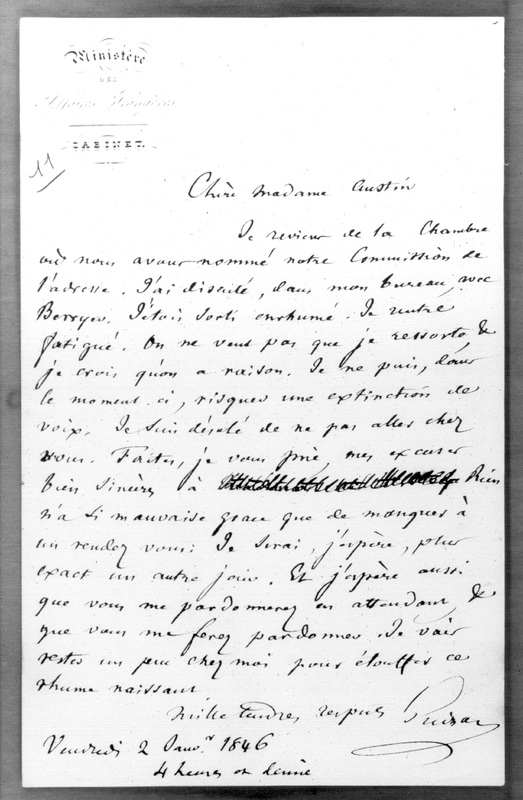 Ministère
DES
Affaires Etrangères
CABINET.
11
Chère Madame Austin
Je reviens de la Chambre
où nous avons nommé notre Commission de
l'adresse. J'ai discuté, dans mon bureau, avec
Berryer. J'étois sorti enrhumé. Je rentre
fatigué. On ne veut pas que je ressorte, &
je crois qu'on a raison. Je ne puis, dans
le moment-ci, risquer une extinction de
voix. Je suis désolé de ne pas aller chez
vous. Faites, je vous prie, mes excuses
bien sincères à Rien
n'a si mauvaise grace que de manquer à
un rendez vous. Je serai, j'espère, plus
exact un autre jour. Et j'espère aussi
que vous me pardonnerez en attendant, &
que vous me ferez pardonner. Je vais
rester un peu chez moi pour étouffer ce
rhume naissant.
Mille tendres respects Guizot
Vendredi 2 Janvr 1846
4 heures et demie